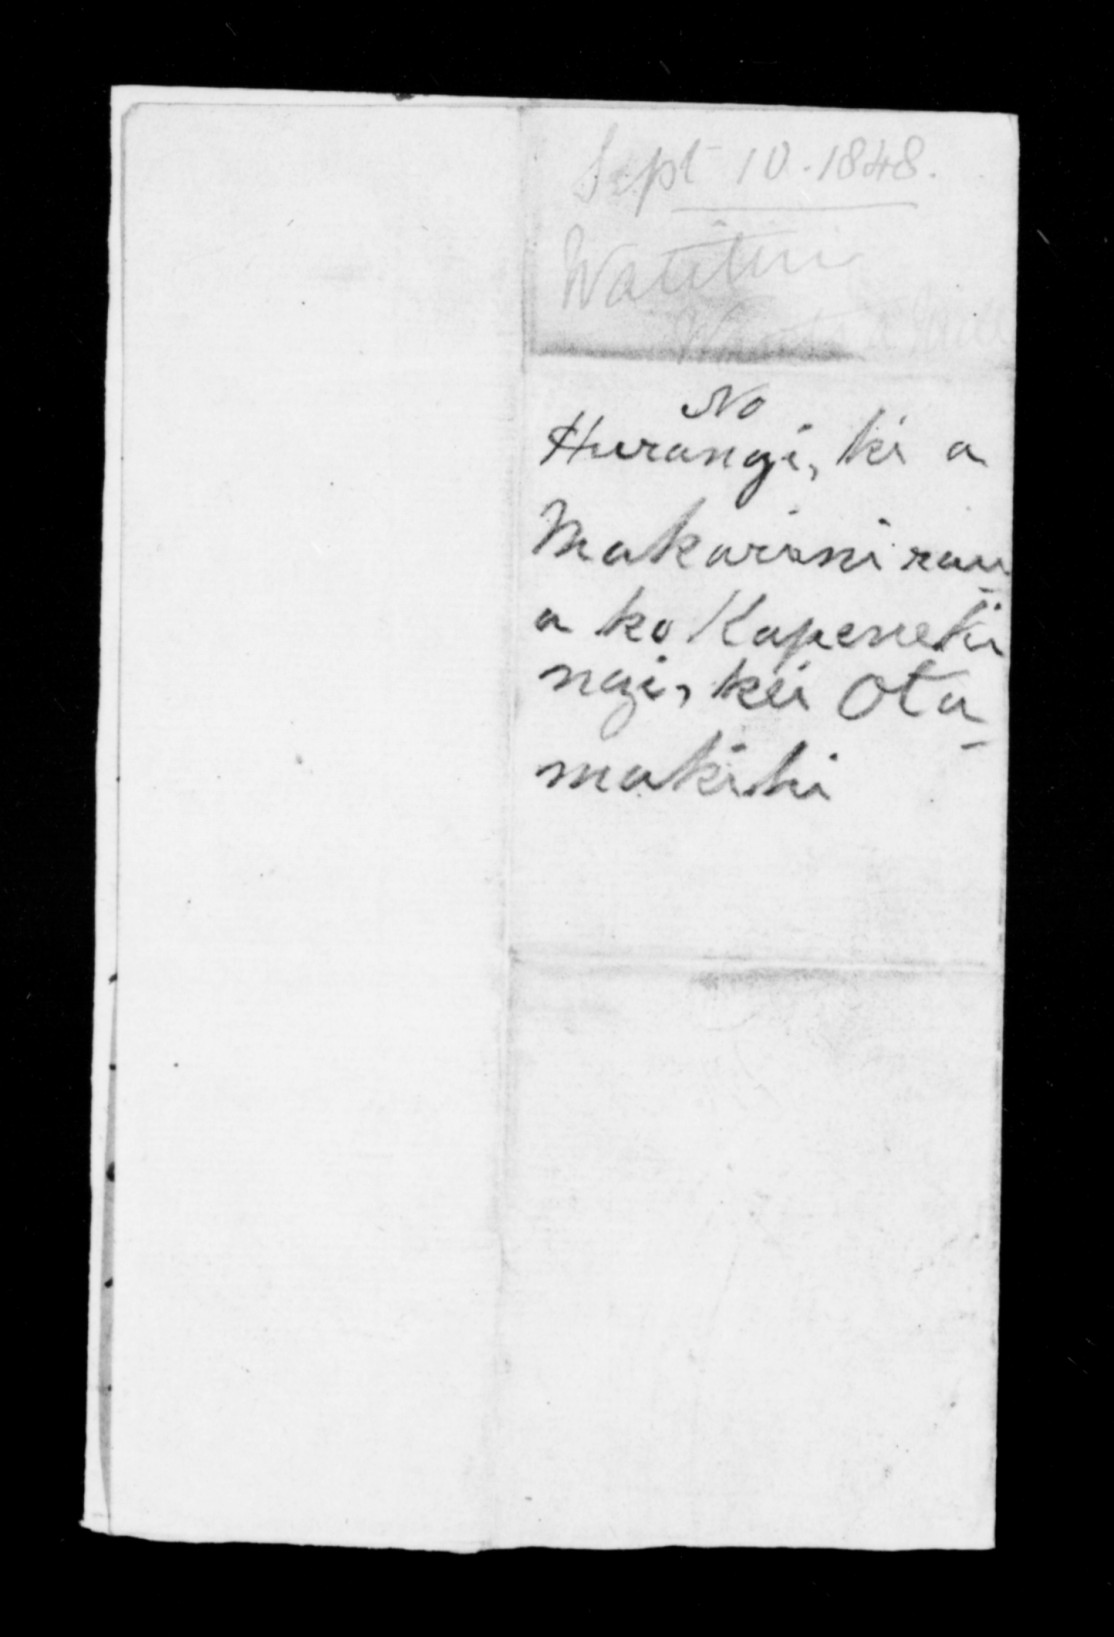 Sept 10. 1848.
Watitini
Wants a
No
Hurangi, ki a
Makarini rau
a ko Kapeneti
ngi, kei Ota
makihi